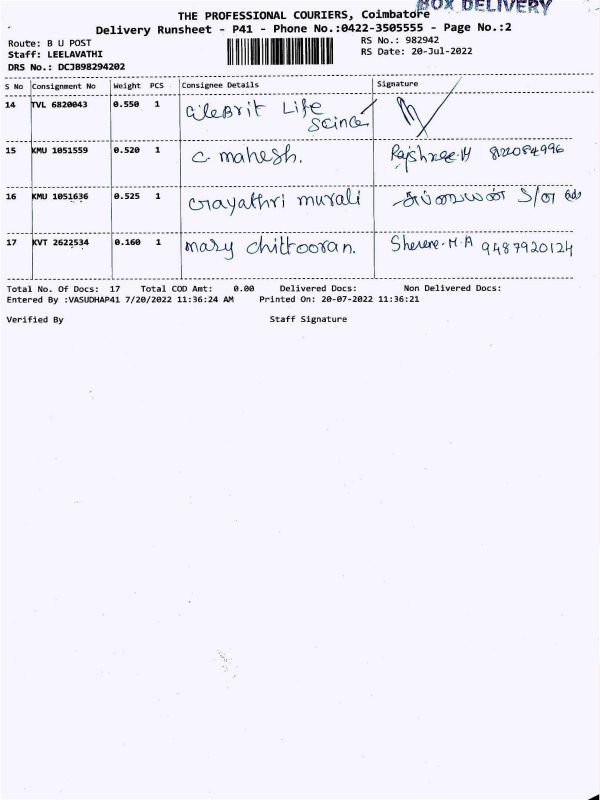 BOX DELIVERY
THE PROFESSIONAL COURIERS, Coimbatore
Delivery Runsheet - P41 - Phone No.:0422-3505555 - Page No.:2
Route: B U POST
RS No.: 982942
Staff: LEELAVATHI
RS Date: 20-Jul-2022
DRS No.: DCJB98294202
S No Consignment No Weight PCS Consignee Details Signature
14 TVL 6820043 0.550 1 Life
15 KMU 1051559 0.520 1 C. mahesh. Rajshree.H
16 KMU 1051636 0.525 1 Gayathri murali S/o
17 KVT 2622534 0.160 1 mary chittooran. Sherene.M.A 9487920124
Total No. Of Docs: 17 Total COD Amt: 0.00 Delivered Docs: Non Delivered Docs:
Entered By :VASUDHAP41 7/20/2022 11:36:24 AM Printed On: 20-07-2022 11:36:21
Verified By Staff Signature